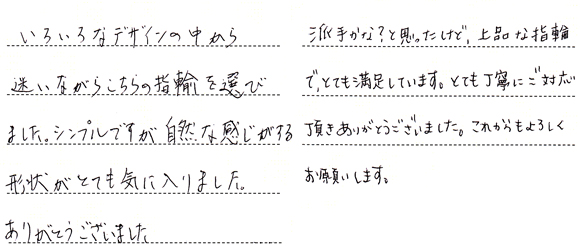 いろいろなデザインの中から
迷いながらこちらの指輪を選び
ました。シンプルですが自然な感じがする
形状がとても気に入りました。
ありがとうございました
派手かな？と思ったけど、上品な指輪
で、とても満足しています。とても丁寧にご対応
頂きありがとうございました。これからもよろしく
お願いします。